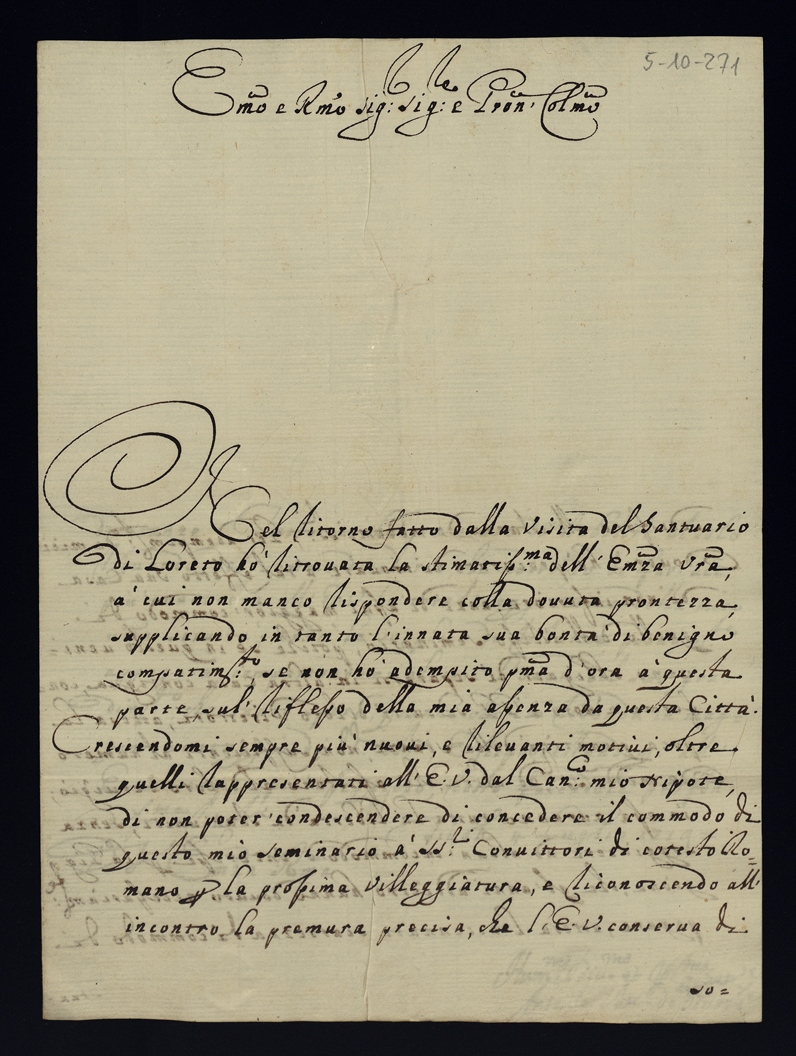 5-10-271
Emo e Rmo Sig:r Sig:re e Pron' Colmo
Nel ritorno fatto dalla visita del Santuario
di Loreto hò ritrovata la stimatiss:ma dell' Emza Vra,
à cui non manco rispondere colla dovuta prontezza,
supplicando in tanto l'innata sua bontà di benigno
compatim:to, se non hò adempito pma d'ora à questa
parte, sul' riflesso della mia assenza da questa Città.
Crescendomi sempre più nuovi, e rilevanti motivi, oltre
quelli rappresentati all' E.V. dal Can:co mio Nipote,
di non poter condescendere di concedere il commodo di
questo mio Seminario à SS:ri Convittori di cotesto Ro=
mano p la prossima villeggiatura, e riconoscendo all'
incontro la premura precisa, che l' E.V. conserva di
so=